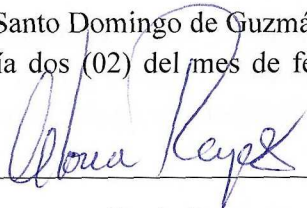 Santo Domingo de Guzmá
ía dos (02) del mes de fe
Reyes